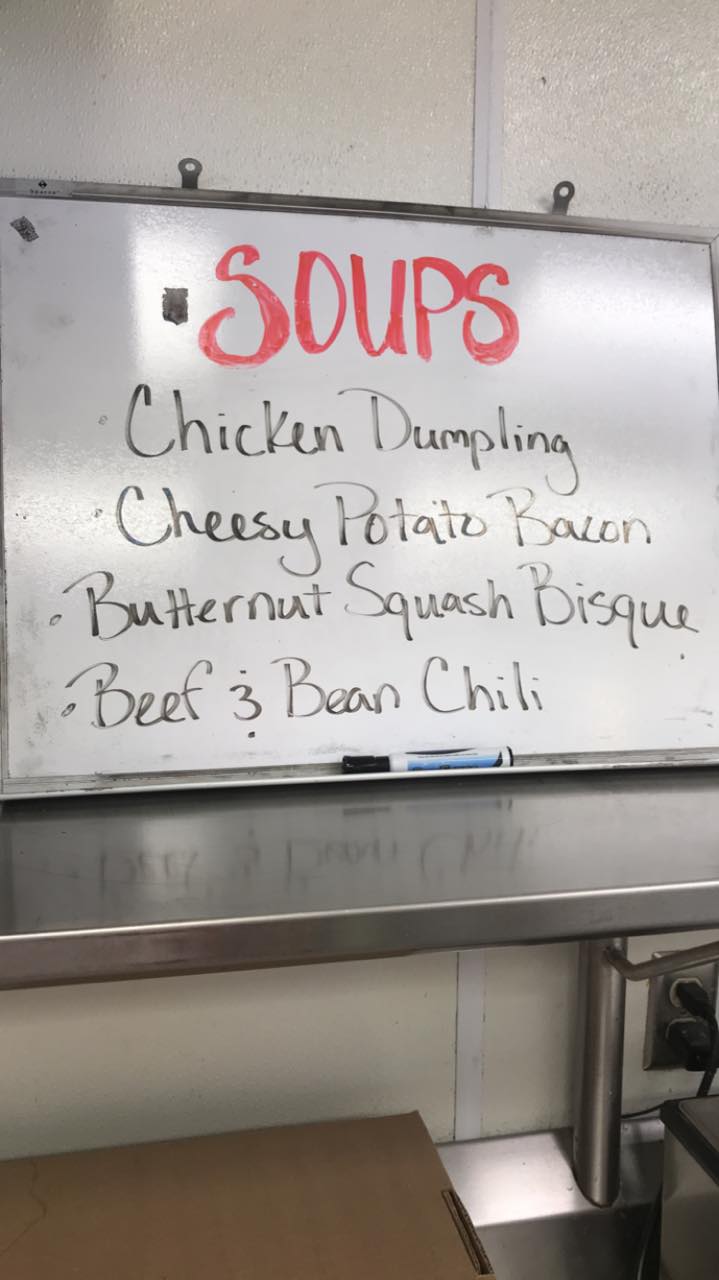 SOUPS
· Chicken Dumpling
· Cheesy Potato Bacon
· Butternut Squash Bisque
· Beef & Bean Chili